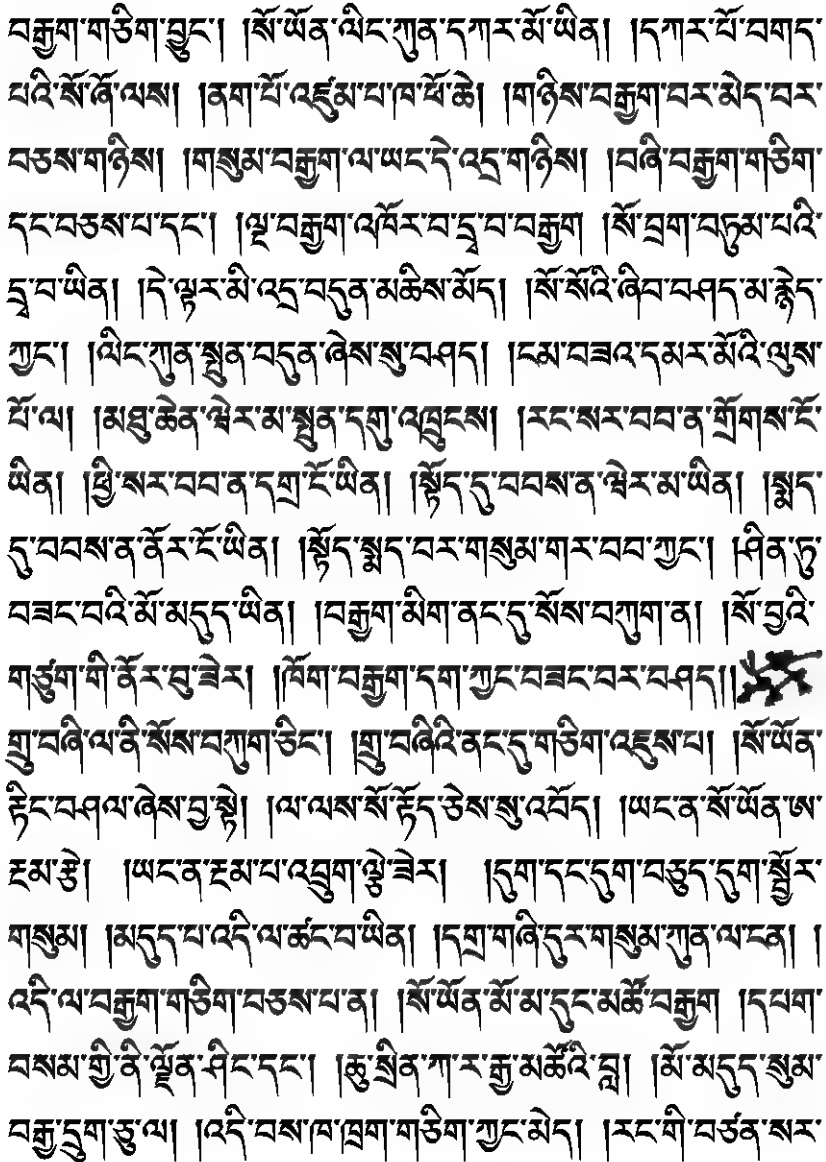 བརྒྱག་གཅིག་བྱུང་། །སོ་ཡོན་ལིང་ཀུན་དཀར་མོ་ཡིན། །དཀར་པོ་བགད་
པའི་སོ་ཞོ་ལས། །ནག་པོ་འཛུམ་པ་ཁ་ཕོ་ཆེ། །གཉིས་བརྒྱག་བར་མེད་བར་
བཅས་གཉིས། །གསུམ་བརྒྱག་ལ་ཡང་དེ་འདྲ་གཉིས། །བཞི་བརྒྱག་གཅིག་
དང་བཅས་པ་དང་། །ལྔ་བརྒྱག་འཁོར་བ་དྲྭ་བ་བརྒྱག །སོ་བྲག་བཏུམ་པའི་
དྲྭ་བ་ཡིན། །དེ་ལྟར་མི་འདྲ་བདུན་མཆིས་མོད། །སོ་སོའི་ཞིབ་བཤད་མ་རྙེད་
ཀྱང་། །ལིང་ཀུན་སྤུན་བདུན་ཞེས་སུ་བཤད། །ངམ་བཟའ་དམར་མོའི་ལུས་
པོ་ལ། །མཐུ་ཆེན་ཝེར་མ་སྤུན་དགུ་འཁྲུངས། །རང་སར་བབ་ན་གྲོགས་ངོ་
ཡིན། །ཕྱི་སར་བབ་ན་དགྲ་ངོ་ཡིན། །སྟོད་དུ་བབས་ན་ཝེར་མ་ཡིན། །སྨད་
དུ་བབས་ན་ནོར་ངོ་ཡིན། །སྟོད་སྨད་བར་གསུམ་གར་བབ་ཀྱང་། །ཤིན་ཏུ་
བཟང་བའི་མོ་མདུད་ཡིན། །བརྒྱག་མིག་ནང་དུ་སོས་བཀུག་ན། །སོ་བྱའི་
གཙུག་གི་ནོར་བུ་ཟེར། །ཁོག་བརྒྱག་དག་ཀྱང་བཟང་བར་བཤད།།
གྲུ་བཞི་ལ་ནི་སོས་བཀུག་ཅིང་། །གྲུ་བཞིའི་ནང་དུ་གཅིག་འཛུས་པ། །སོ་ཡོན་
རྟིང་བཤལ་ཞེས་བྱ་སྟེ། །ལ་ལས་སོ་རྟོད་ཅེས་སུ་འབོད། །ཡང་ན་སོ་ཡོན་ཨ་
རྔམ་རྩེ། །ཡང་ན་རྔམ་པ་འབྲུག་ལྕེ་ཟེར། །དུག་དང་དུག་བཅུད་དུག་སྦྱོར་
གསུམ། །མདུད་པ་འདི་ལ་ཚང་བ་ཡིན། །དགྲ་གཞི་དུར་གསུམ་ཀུན་ལ་ངན། །
འདི་ལ་བརྒྱག་གཅིག་བཅས་པ་ན། །སོ་ཡོན་མོ་མ་དུང་མཚོ་བརྒྱག །དཔག་
བསམ་གྱི་ནི་ལྗོན་ཤིང་དང་། །ཆུ་སྲིན་ཀ་ར་རྒྱ་མཚོའི་བླ། །མོ་མདུད་སུམ་
བརྒྱ་དྲུག་ཅུ་ལ། །འདི་བས་ཁ་ཁྲག་གཅིག་ཀྱང་མེད། །རང་གི་བཙན་སར་